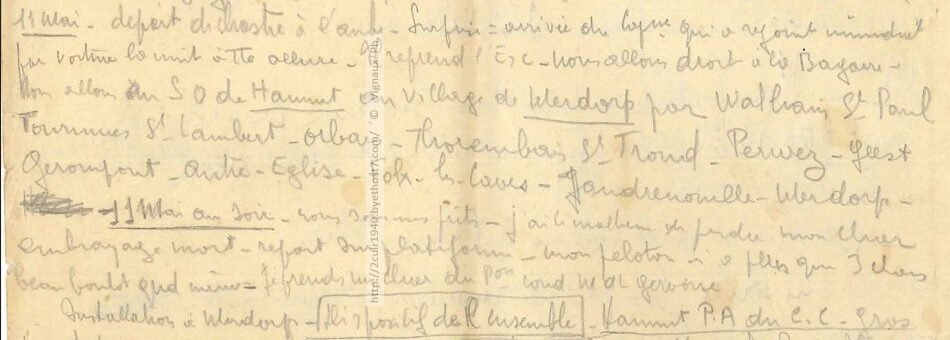 11 Mai - départ d'Ehostré à l'aube - Surprise = arrivée du Capne qui a rejoint immédiat
par voiture la nuit à tte allure - Il reprend l'Esc - nous allons droit à la Bagarre -
Nous allons au S O de Hannut au village de Merdorp par Walhain St Paul
Tourinnes St Lambert - Orbais - Thorembais St Trond - Perwez - Geest
Gerompont - Autre-Eglise - Folx-les-Caves - Jandrenouille - Merdorp -
- 11 Mai au soir - nous sommes prêts - j'ai le malheur de perdre mon char
embrayage mort - repart sur plateforme - mon peloton n'a plus que 3 chars
beau boulot qud même = Je prends un char du Pon
Installation à Merdorp - Dispositif de l'ensemble - Hannut P.A du C.C - Gros
http://2cuir1940.byethost7.com/ © Vignaux Ph.